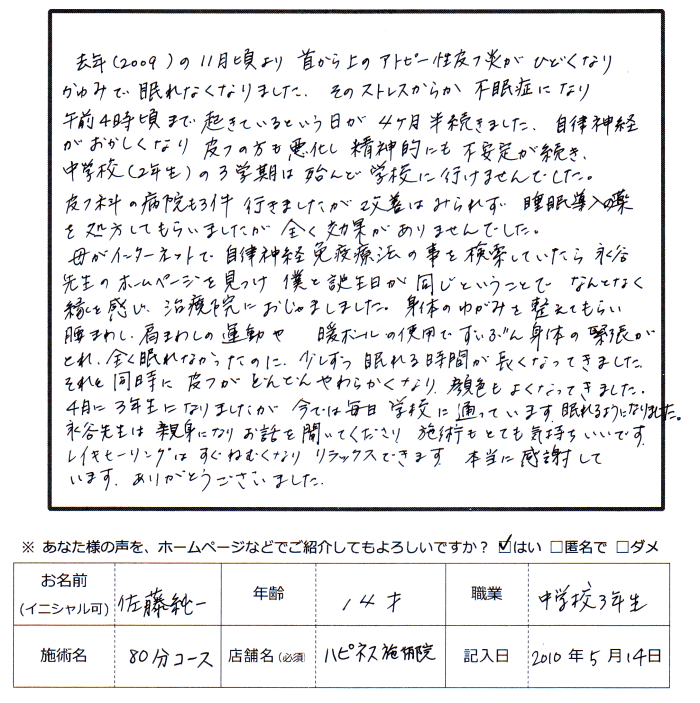 去年(2009)の11月頃より 首から上のアトピー性皮フ炎が ひどくなり
かゆみで 眠れなくなりました. そのストレスからか 不眠症になり
午前4時頃まで 起きているという日が 4ヶ月半続きました. 自律神経
がおかしくなり 皮フの方も悪化し 精神的にも 不安定が続き、
中学校(2年生)の3学期は 殆んど 学校に行けませんでした。
皮フ科の病院も3件 行きましたが 改善はみられず 睡眠導入の薬
を処方してもらいましたが 全く効果がありませんでした。
母がインターネットで 自律神経免疫療法の事を検索していたら 永谷
先生のホームページを見つけ 僕と誕生日が 同じということで なんとなく
縁を感じ、治療院におじゃましました。身体のゆがみを整えてもらい
腰まわし、肩まわしの運動や 暖ボールの使用で ずいぶん 身体の 緊張が
とれ、全く眠れなかったのに、少しずつ 眠れる時間が 長くなってきました.
それと同時に 皮フが どんどんやわらかくなり、顔色もよくなってきました。
4月に3年生になりましたが 今では毎日 学校に 通っています. 眠れるようになりました。
永谷先生は 親身になり お話を聞いてくださり 施術もとても気持ちいいです.
レイキヒーリングは すぐねむくなり リラックスできます. 本当に 感謝して
います. ありがとうございました.
※ あなた様の声を、ホームページなどでご紹介してもよろしいですか? ☑はい □匿名で □ダメ
お名前(イニシャル可) 佐藤純一 年齢 14才 職業 中学校3年生
施術名 80分コース 店舗名(必須) ハピネス施術院 記入日 2010年5月14日